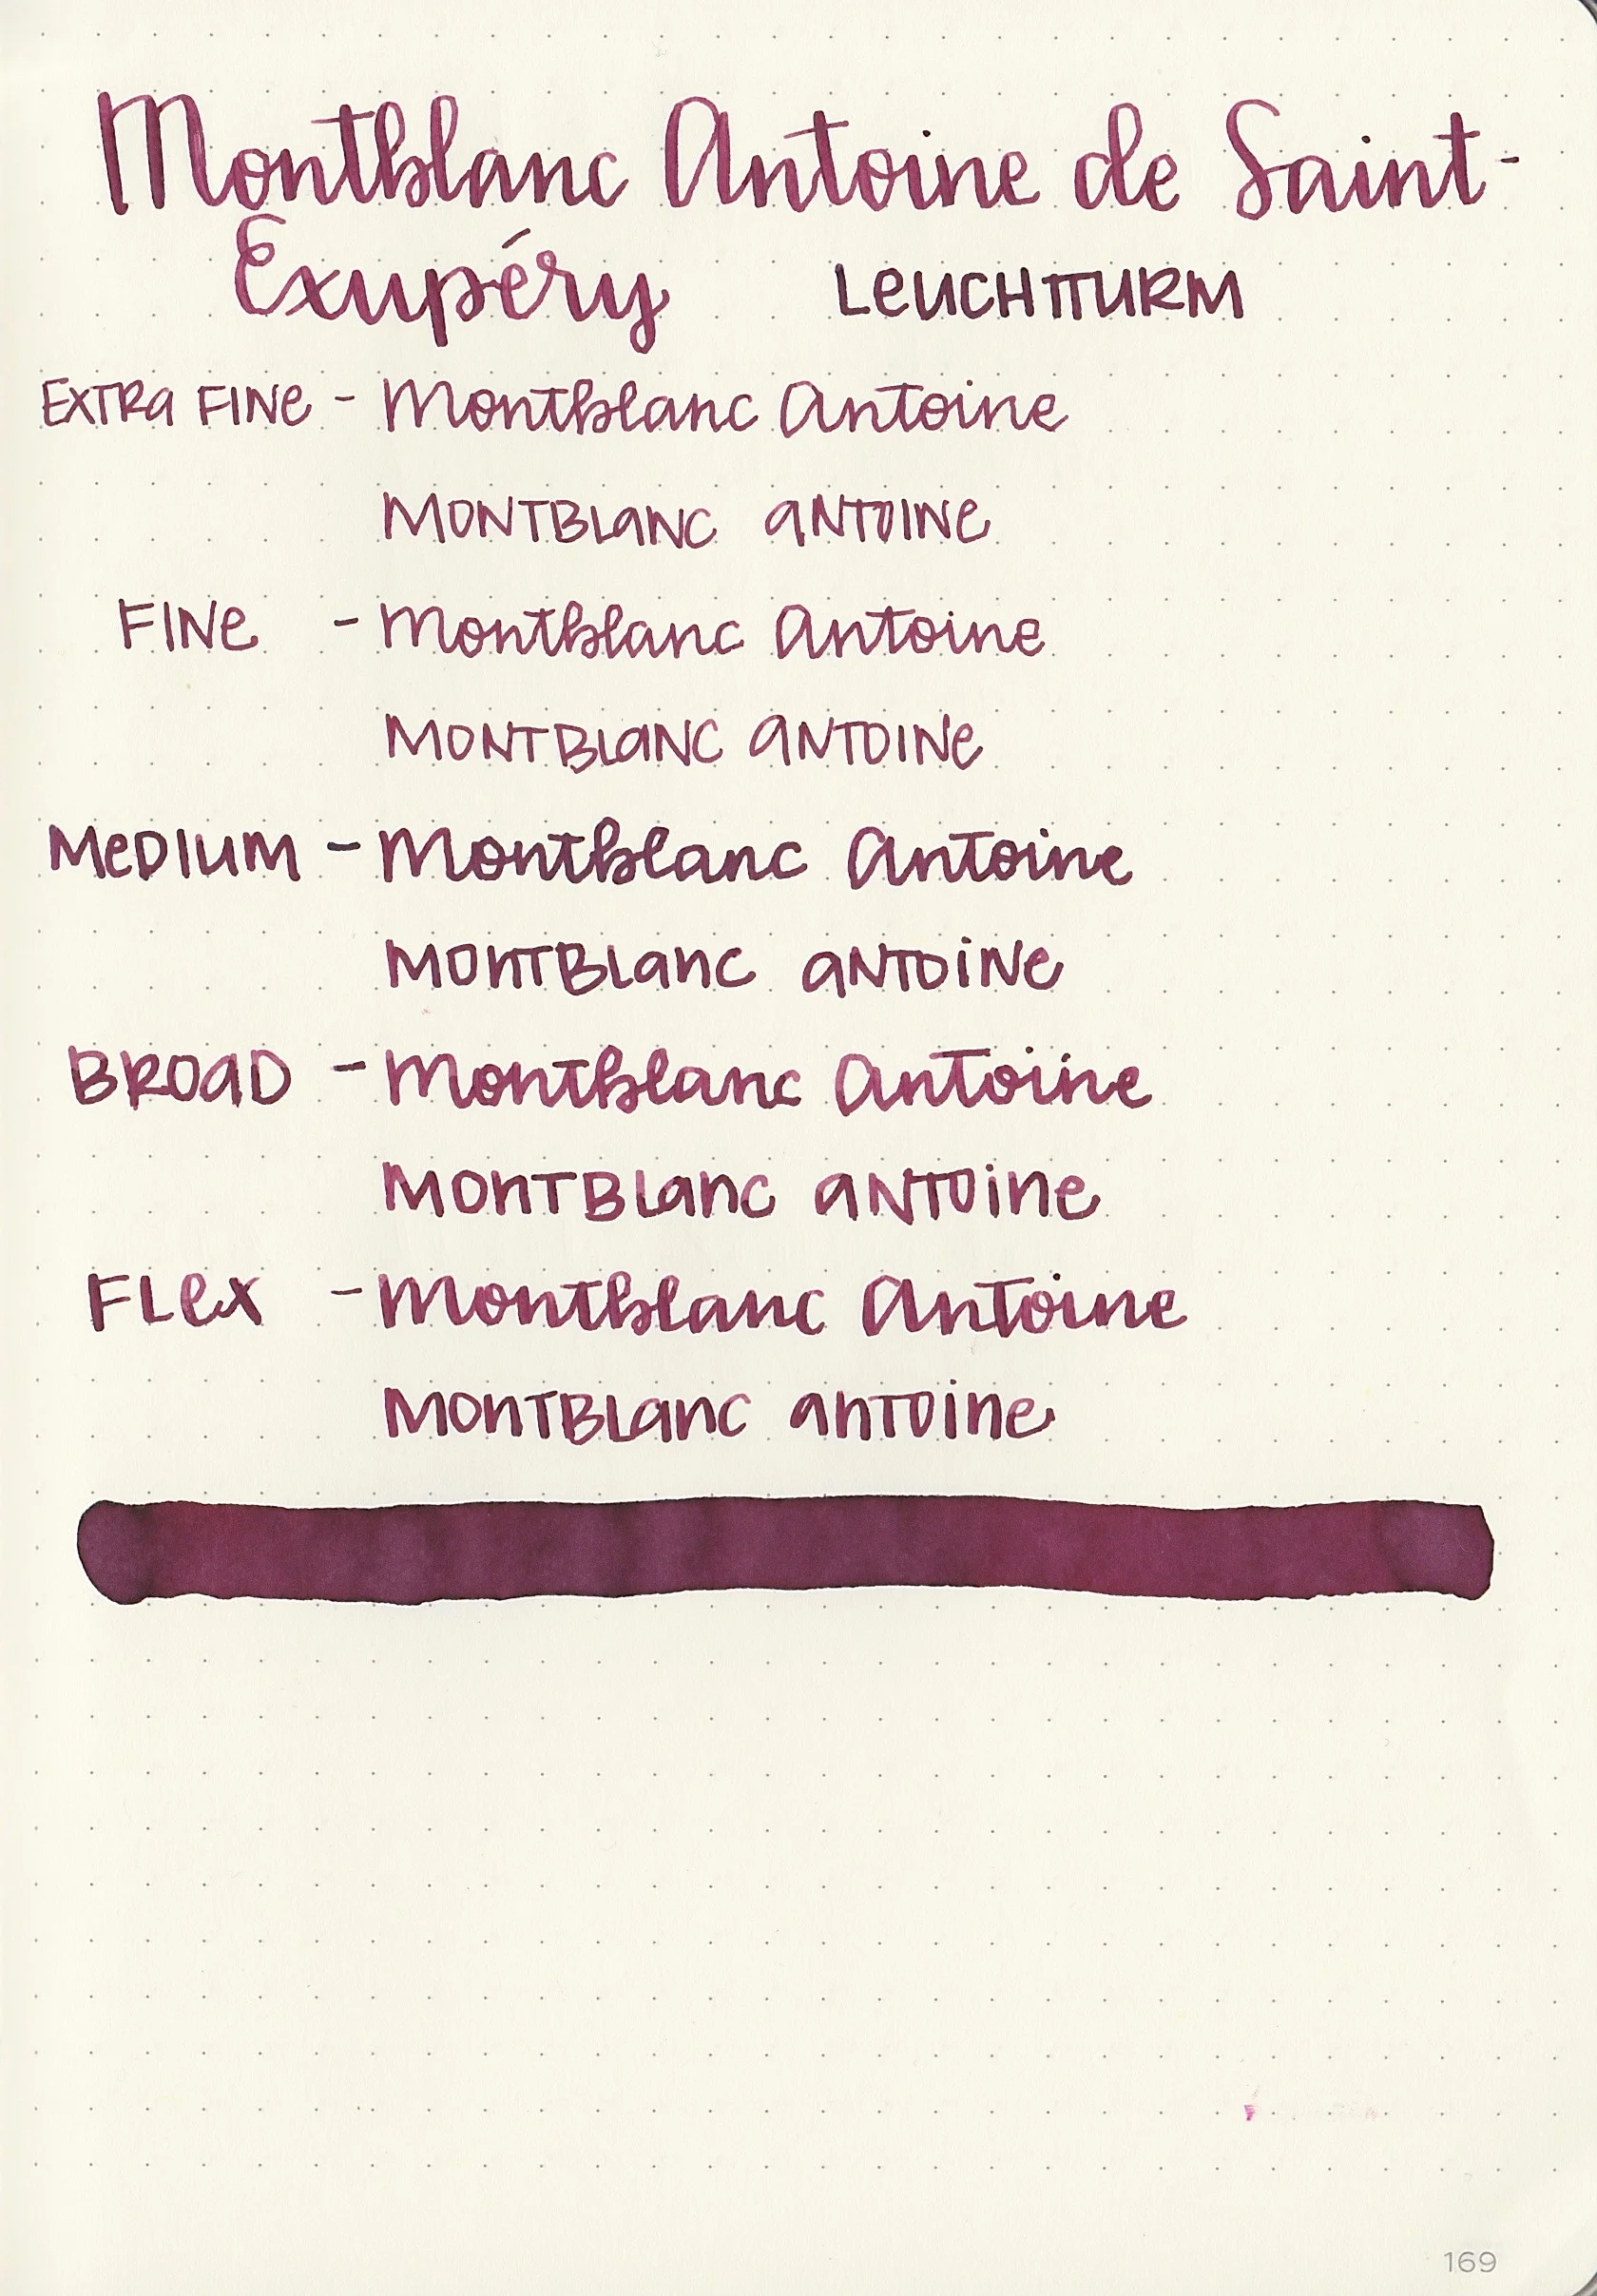 Montblanc Antoine de Saint-
Exupéry LEUCHTTURM
EXTRa FINe - Montblanc Antoine
MONTBLaNC aNTOINe
FINe - Montblanc Antoine
MONTBLaNC aNTOINe
MeDIUM - Montblanc Antoine
MOnTBLanc aNTOiNe
BROaD - Montblanc Antoine
MOnTBLanc aNTOine
FLex - Montblanc Antoine
MOnTBLanc anTOine
169